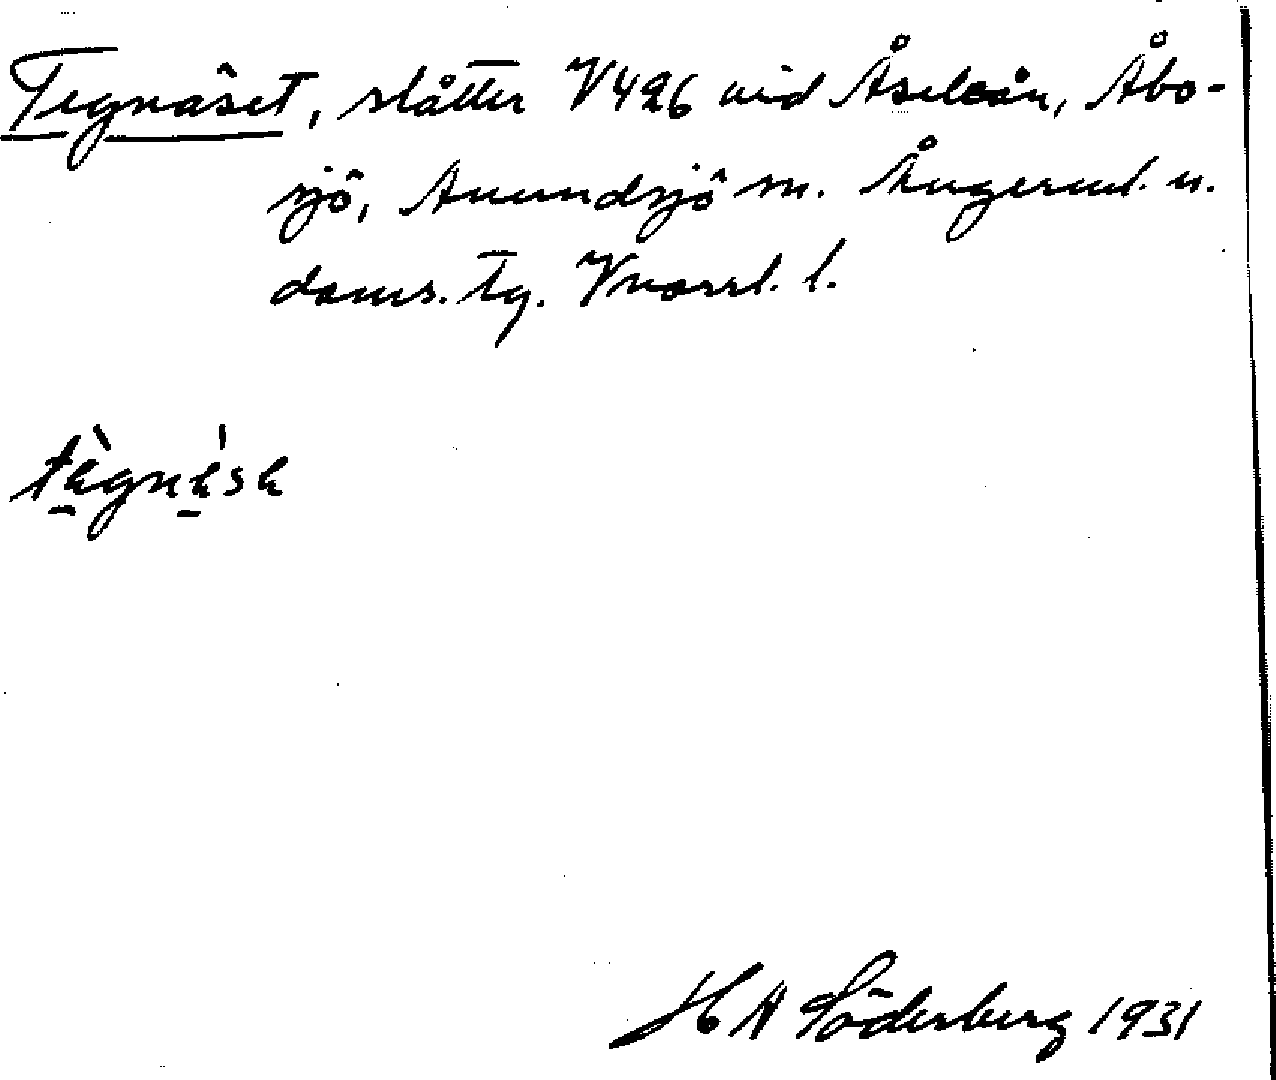 Tegnäset, slåtter V426 vid Åseleån, Åbo-
sjö, Anundsjö sn. Ångerml. n.
doms. tg. Vnorrl. l.
H A Söderberg 1931